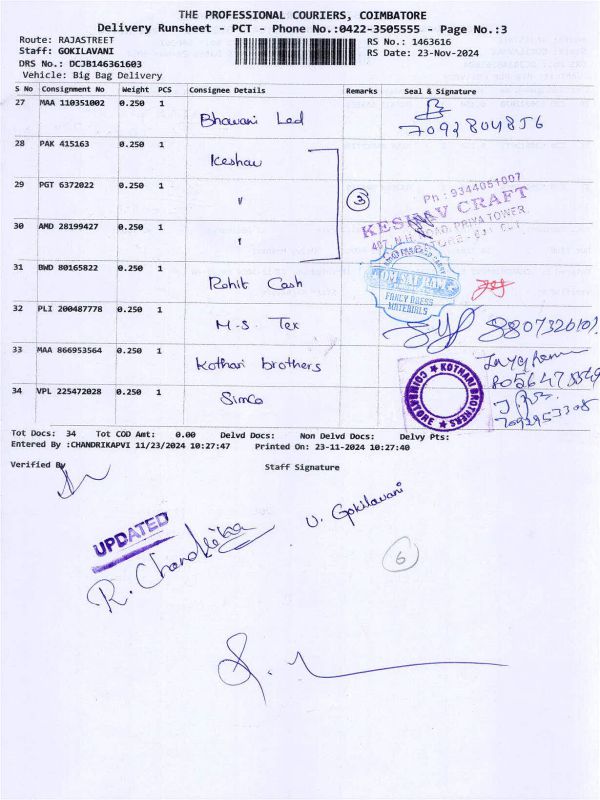 THE PROFESSIONAL COURIERS, COIMBATORE
Delivery Runsheet - PCT - Phone No.:0422-3505555 - Page No.:3
Route: RAJASTREET
RS No.: 1463616
Staff: GOKILAVANI
RS Date: 23-Nov-2024
DRS No.: DCJB146361603
Vehicle: Big Bag Delivery
S No Consignment No Weight PCS Consignee Details Remarks Seal & Signature
27 MAA 110351002 0.250 1 Bhawani Led
28 PAK 415163 0.250 1 Keshav
29 PGT 6372022 0.250 1 " 3
Ph: 9344051007
KESHAV CRAFT
30 AMD 28199427 0.250 1 "
31 BWD 80165822 0.250 1 Rohit Cash
FANCY DRESS
MATERIALS
32 PLI 200487778 0.250 1 M.S. Tex
33 MAA 866953564 0.250 1 Kothari brothers
KOTHARI BROTHERS ★ COIMBATORE ★
34 VPL 225472028 0.250 1 Simco
Tot Docs: 34 Tot COD Amt: 0.00 Delvd Docs: Non Delvd Docs: Delvy Pts:
Entered By :CHANDRIKAPVI 11/23/2024 10:27:47 Printed On: 23-11-2024 10:27:40
Verified By
Staff Signature
UPDATED
R. Chandrika
V. Gokilavani
6